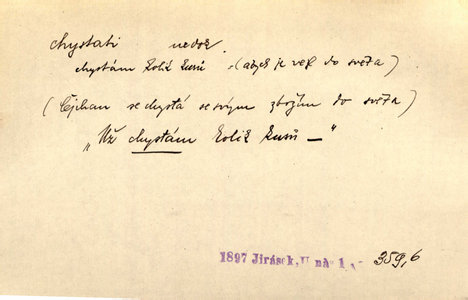 chystati nedok.
chystám kolik kusů (abych je vzal do světa)
(Cyhan se chystá se svým zbožím do světa)
„Už chystám kolik kusů —“
1897 Jirásek, U nás 1 359,6